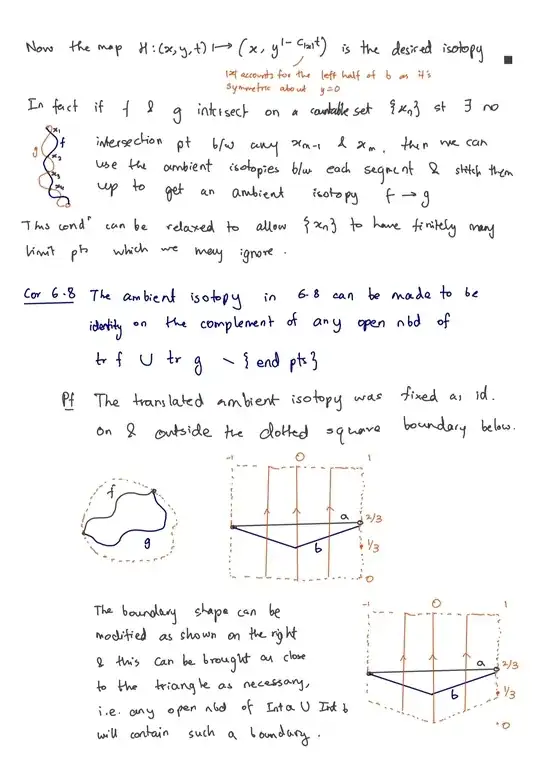 Now the map H : (x, y, t) ↦ (x, y^{1 - c_{|x|} t}) is the desired isotopy ■
|x| accounts for the left half of b as it's
symmetric about y=0
In fact if f & g intersect on a countable set {xₙ} st ∃ no
intersection pt b/w any x_{m-1} & x_m, then we can
use the ambient isotopies b/w each segment & stitch them
up to get an ambient isotopy f → g
x₁
f
g
x₂
x₃
x₄
This condⁿ can be relaxed to allow {xₙ} to have finitely many
limit pts which we may ignore.
Cor 6.8 The ambient isotopy in 6.8 can be made to be
identity on the complement of any open nbd of
tr f ∪ tr g ∖ {end pts}
Pf The translated ambient isotopy was fixed as id.
on & outside the dotted square boundary below.
f
g
-1 0 1
a 2/3
b 1/3
0
The boundary shape can be
modified as shown on the right
& this can be brought as close
to the triangle as necessary,
i.e. any open nbd of Int a ∪ Int b
will contain such a boundary.
-1 0 1
a 2/3
b 1/3
0